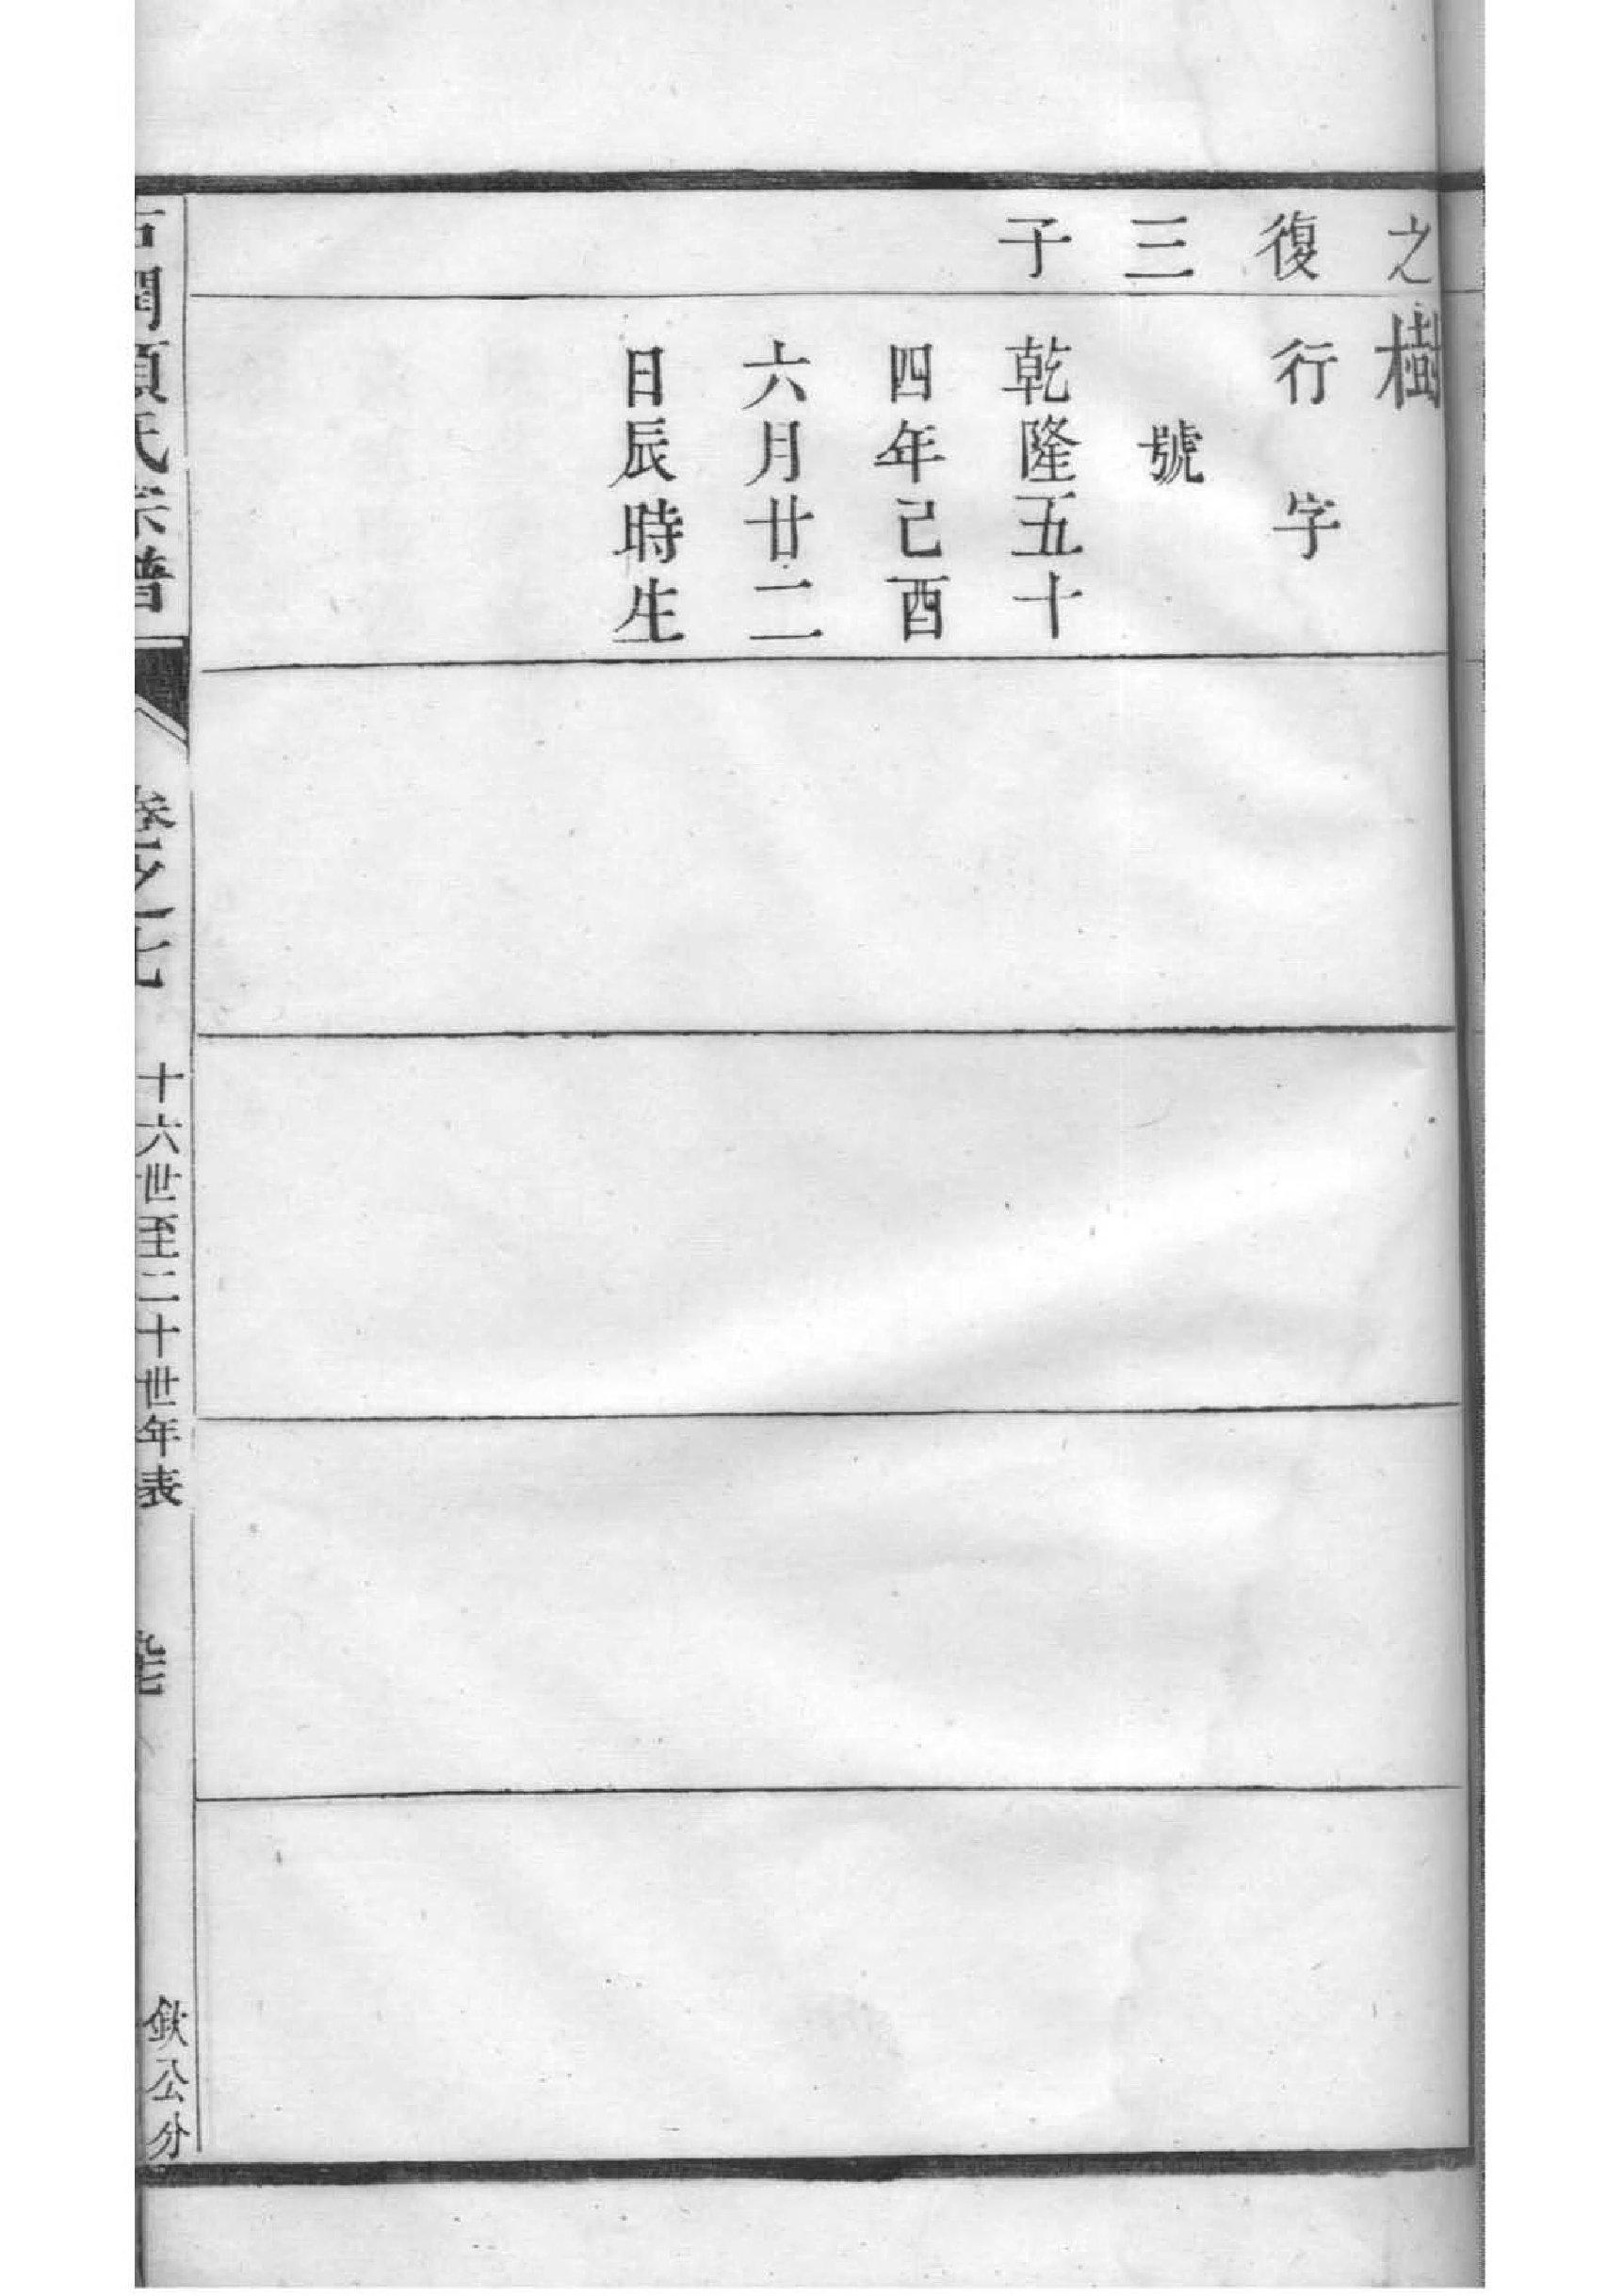 之復三子
樹
行　字
號
乾隆五十
四年己酉
六月廿二
日辰時生
氏宗譜
卷之
十六世至二十世年表
釱公分